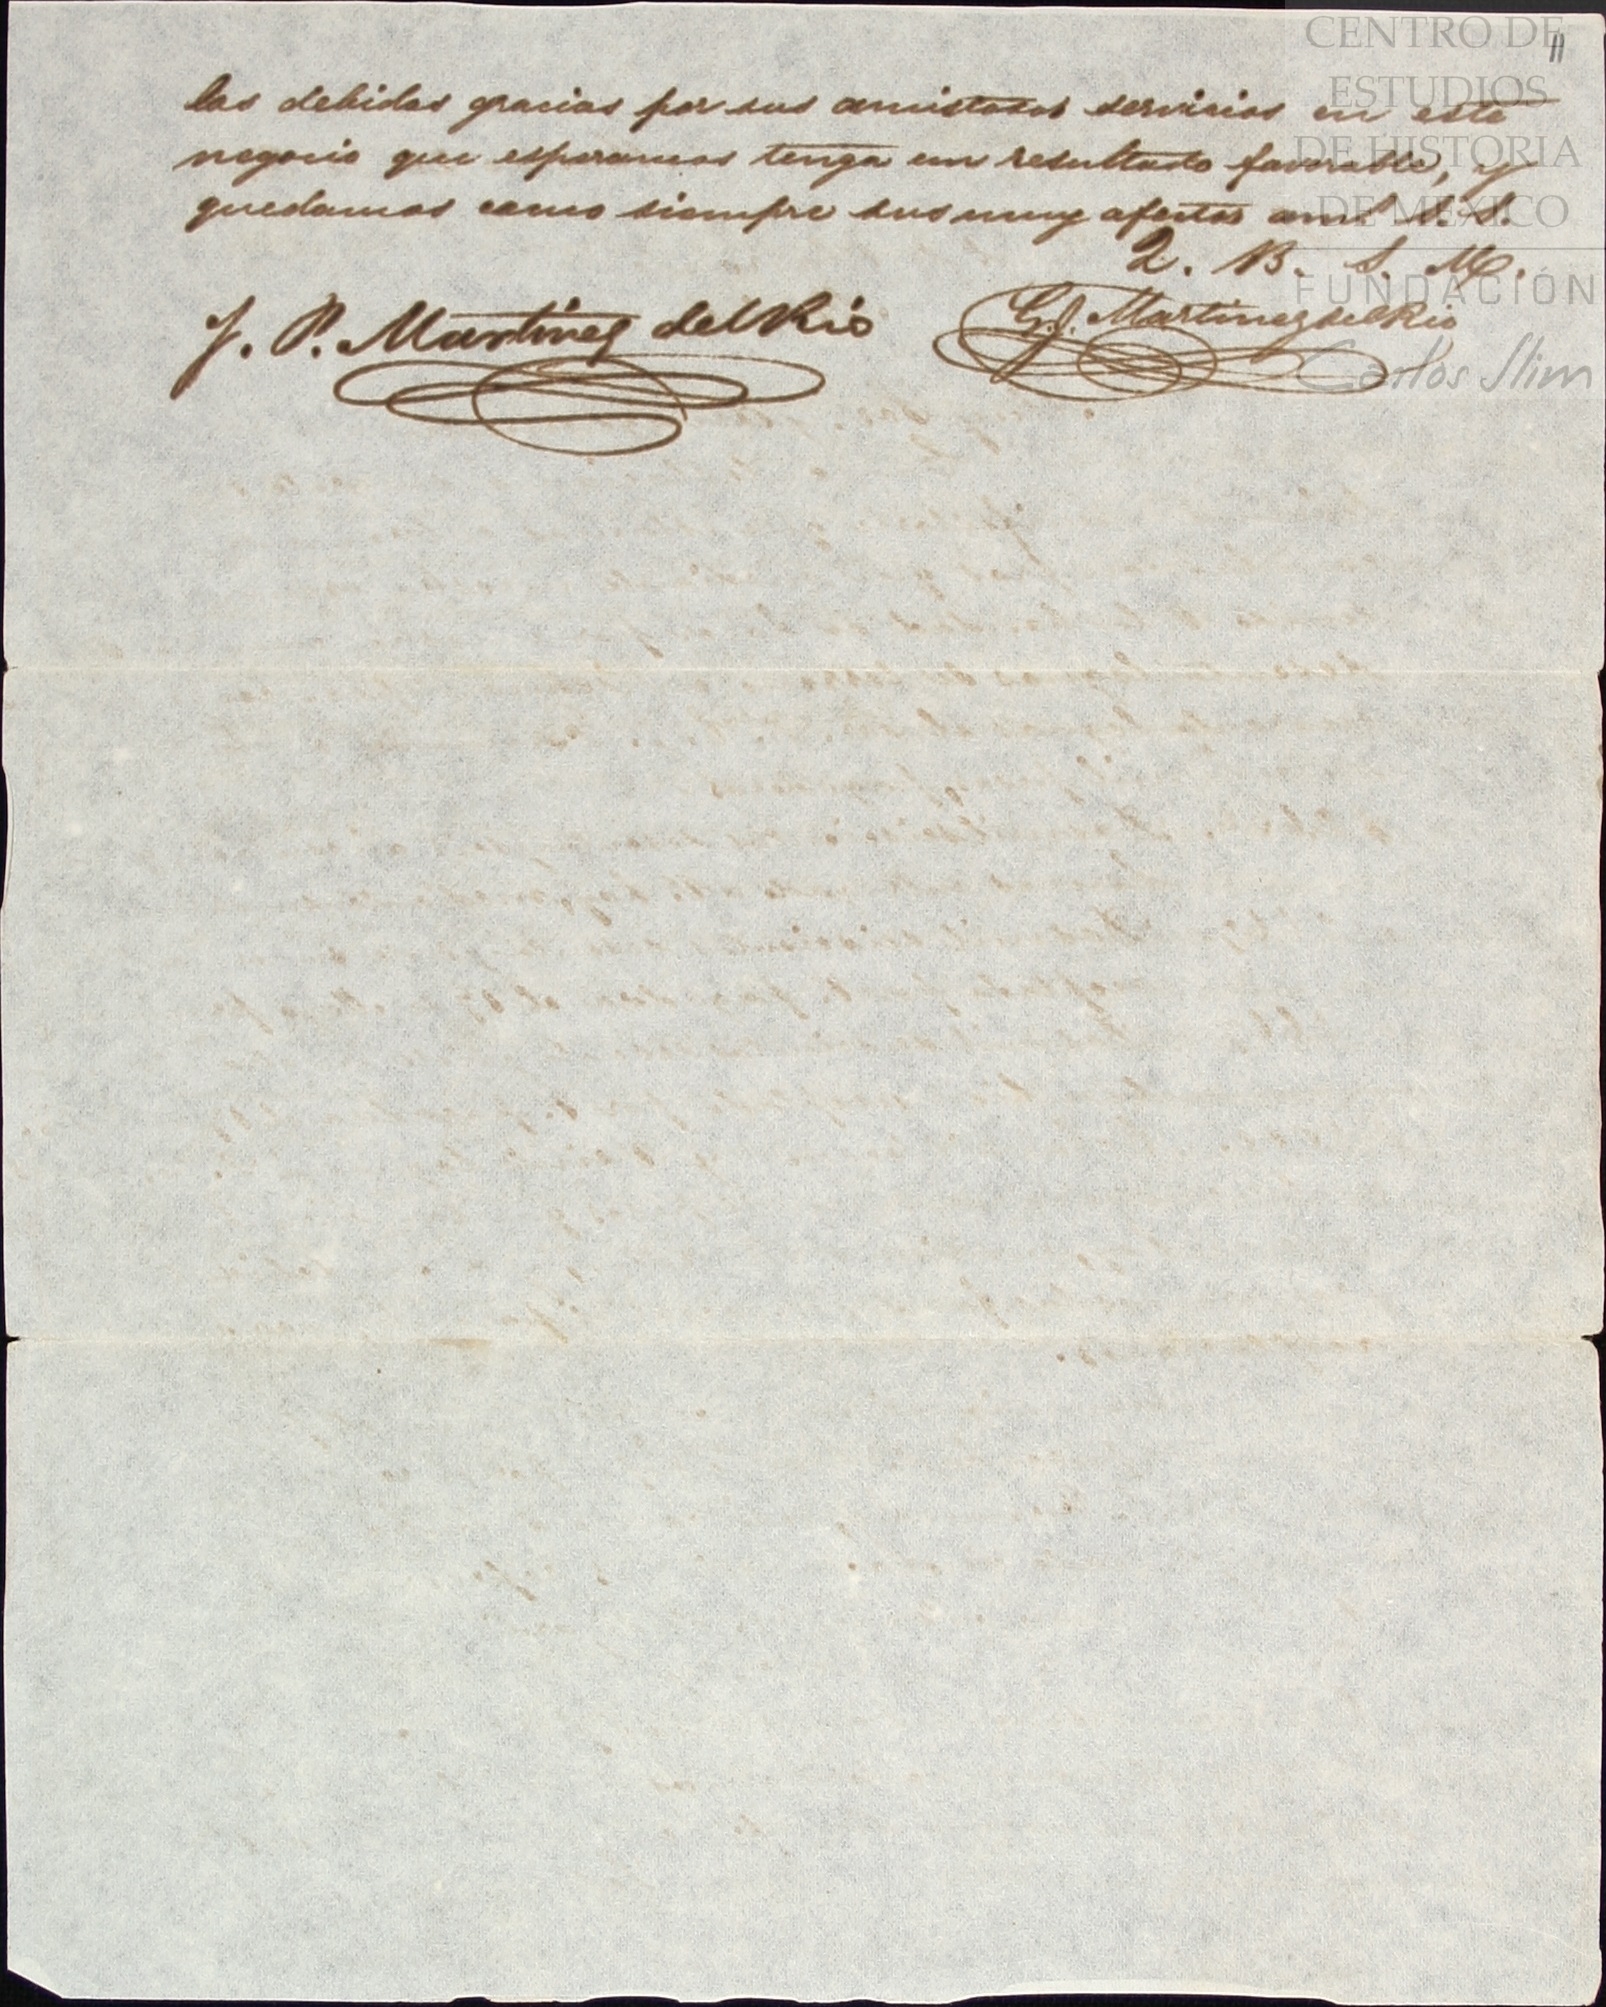 11
las debidas gracias por sus amistosos servicios en este
negocio que esperamos tenga un resultado favorable, y
quedamos como siempre sus muy afectos am.s S. S.
Q. B. S. M.
J. P. Martinez del Rio
G. J. Martinez del Rio
CENTRO DE
ESTUDIOS
DE HISTORIA
DE MÉXICO
FUNDACIÓN
Carlos Slim